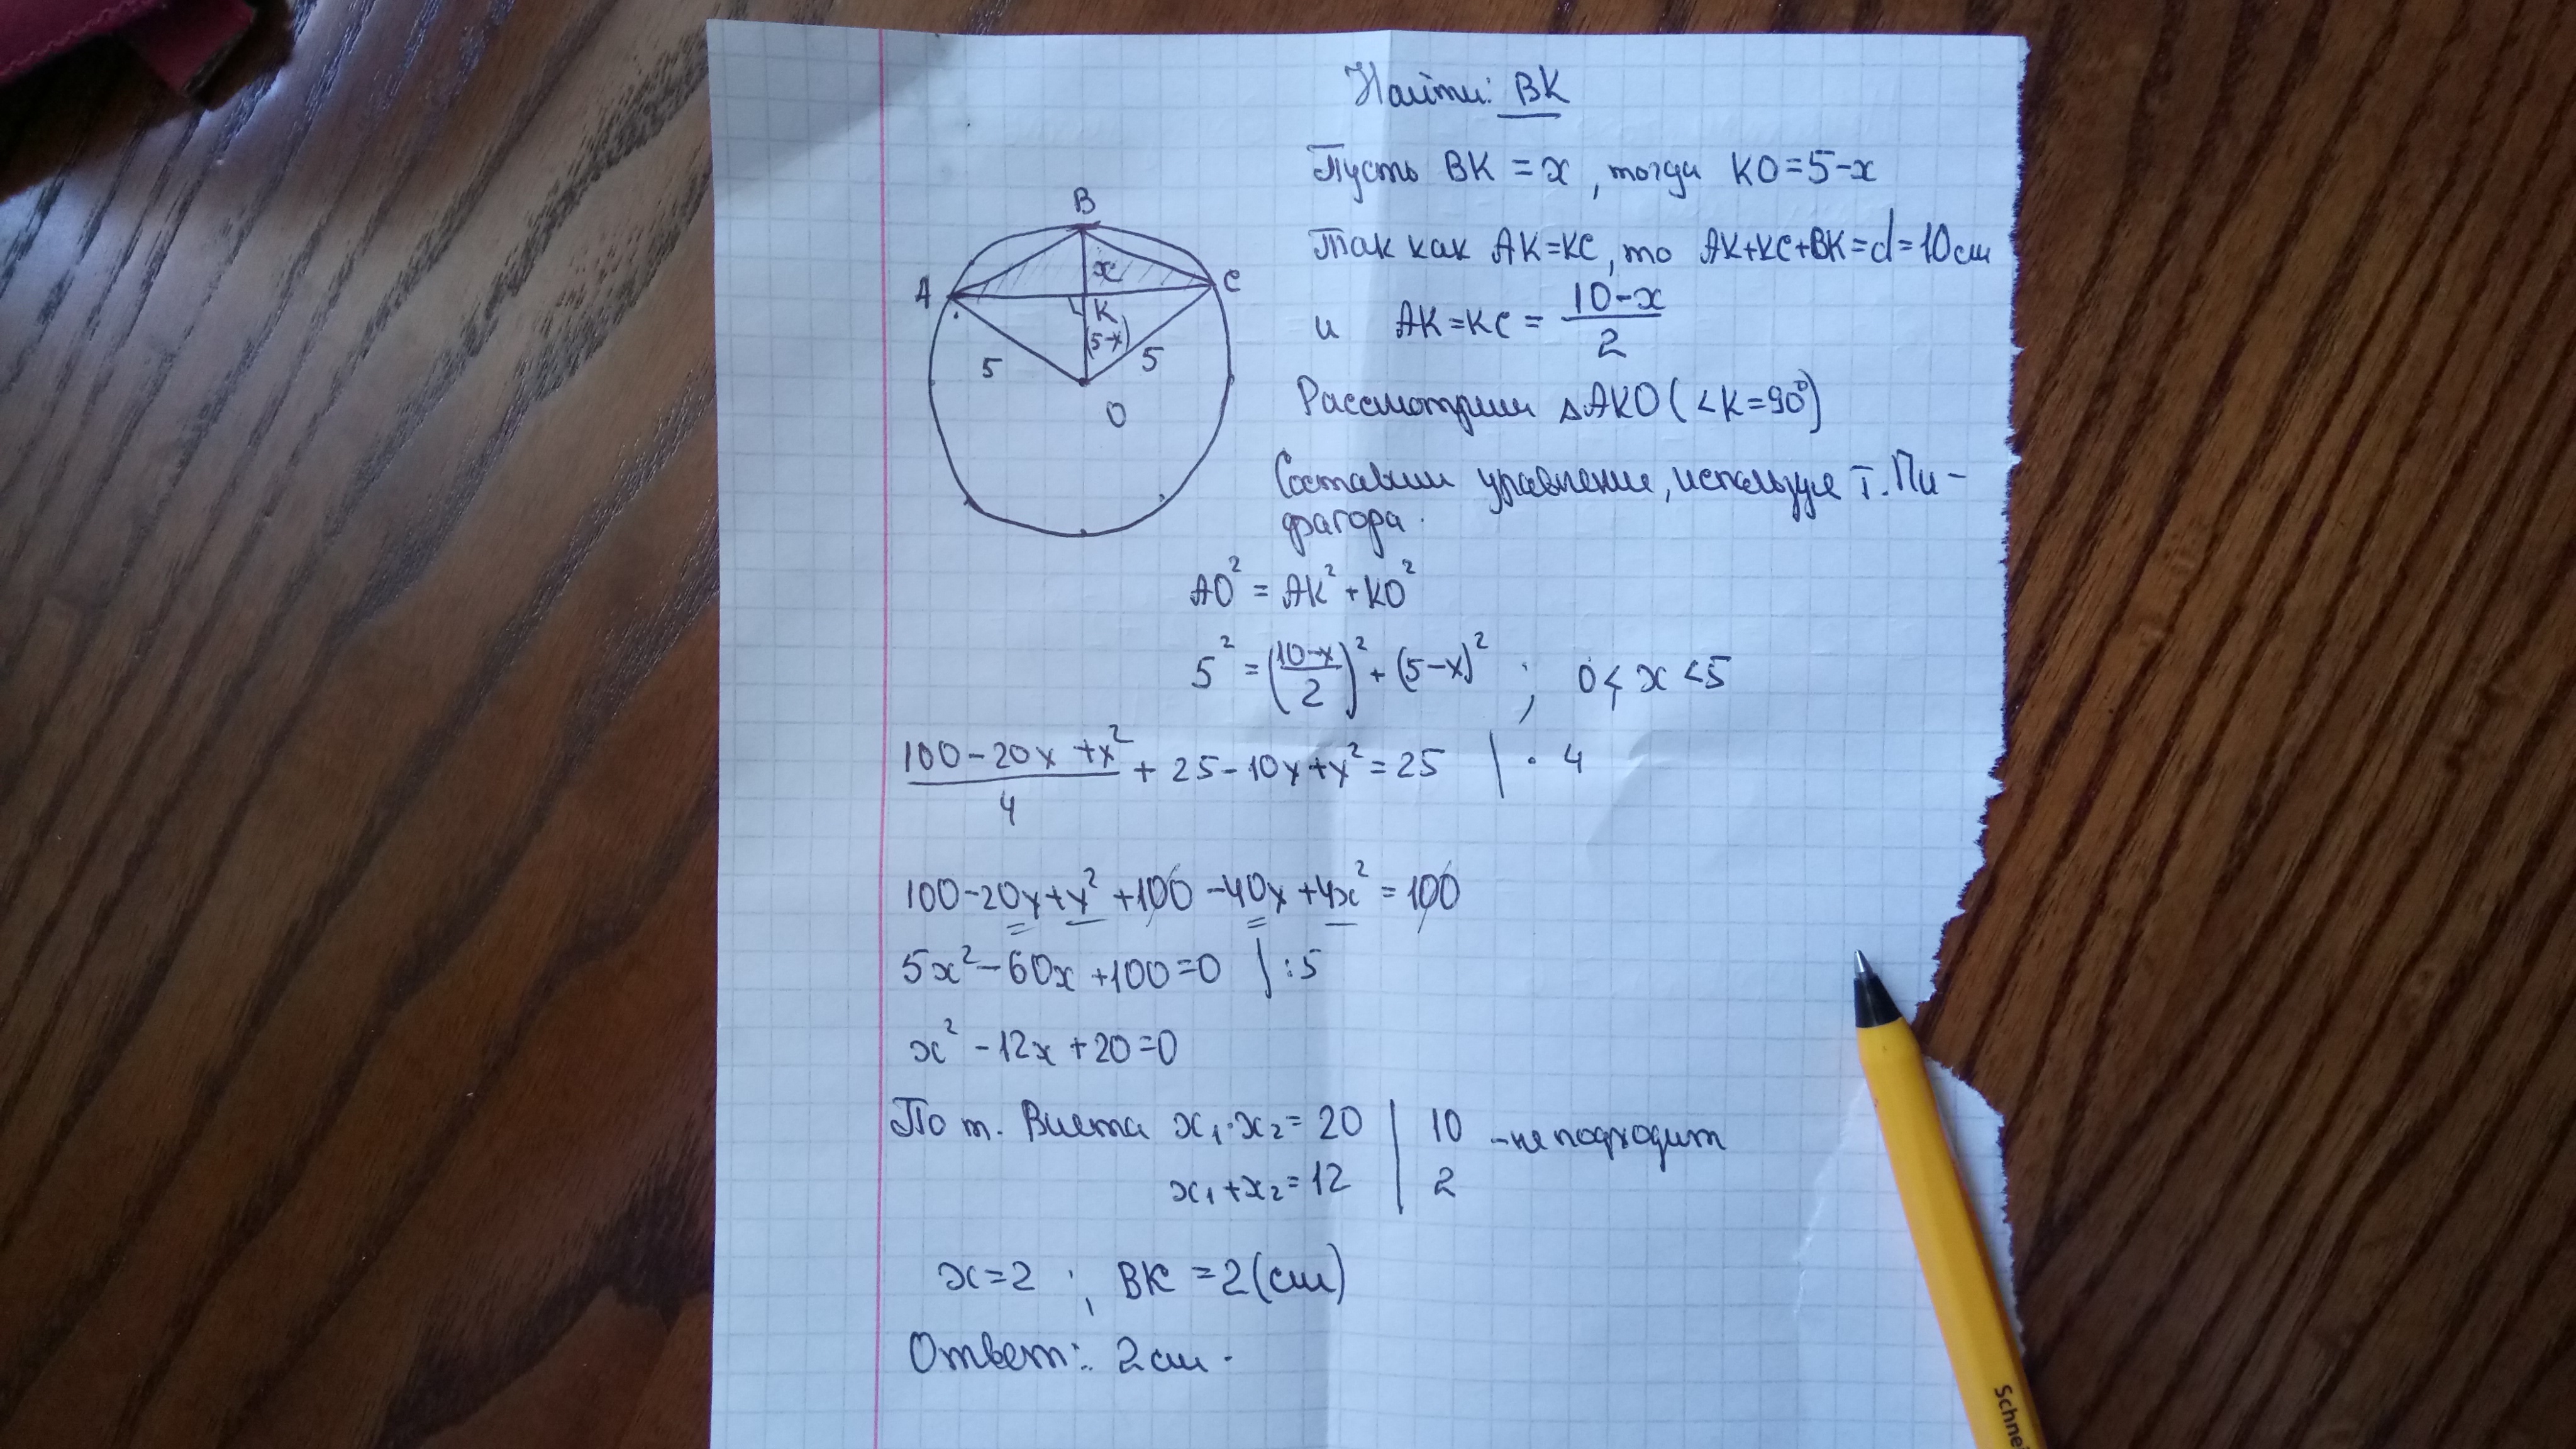 Найти: BK
Пусть BK = x, тогда KO=5-x
Так как AK=KC, то AK+KC+BK=d=10см
и AK=KC= (10-x)/2
Рассмотрим △AKO (∠K=90°)
Составим уравнение, используя т. Пи-
фагора.
B
A
C
x
K
(5-x)
5
5
O
AO²=AK²+KO²
5²=((10-x)/2)²+(5-x)² ; 0<x<5
(100-20x+x²)/4 + 25-10x+x²=25 | · 4
100-20x+x²+100-40x+4x²=100
5x²-60x+100=0 | :5
x²-12x+20=0
По т. Виета x₁·x₂=20 | 10 - не подходит
x₁+x₂=12 | 2
x=2 ; BK=2(см)
Ответ: 2см.
Schnei